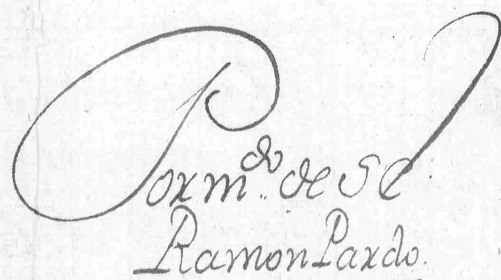 Por m.do de S E
Ramon Pardo.